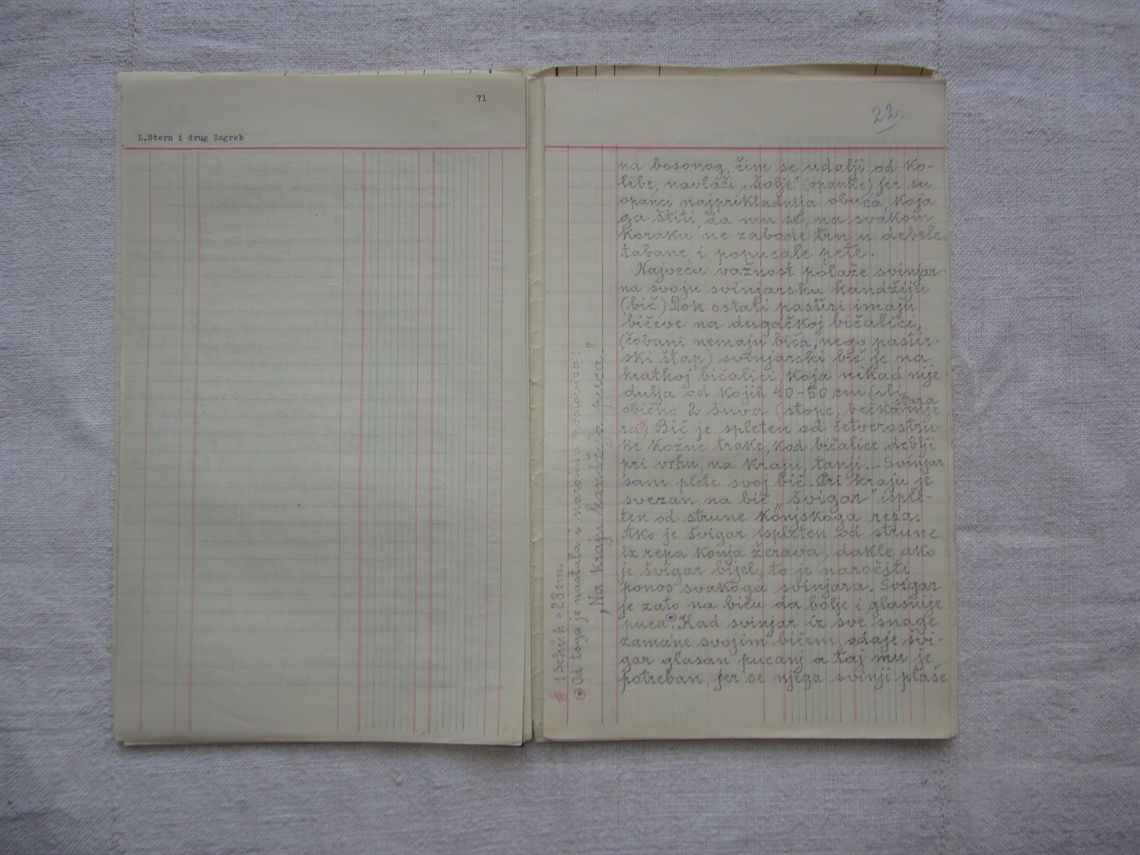 71
L.Stern i drug Zagreb
22.
na bosonog, čim se udalji od ko-
libe, navlači „šolje" (opanke), jer su
opanci najprikladnija obuća, koja
ga štiti, da mu se, na svakom
koraku ne zabode trn u debele,
tabane i popucale pete.
Najveću važnost polaže svinjar
na svoju svinjarsku kandžiju
(bič) Dok ostali pastiri imaju
bičeve na dugačkoj bičalici,
(čobani nemaju biča, nego pastir-
ski štap) svinjarski bič je na
kratkoj bičalici, koja nikad nije
dulja od kojih 40-50 cm (ili
obično 2 šuva (stope, bečka mje
stara
ra) Bič je spleten od četverostru-
ke kožne trake, kod bičalice deblji
pri vrhu, na kraju, tanji. - Svinjar
sam plete svoj bič. Pri kraju je
svezan na bič „švigar" isple-
ten od strune konjskoga repa.
Ako je švigar ispleten od strune
iz repa konja žerava, dakle ako
je švigar bijel, to je naročiti
ponos svakoga svinjara. Švigar
je zato na biču da bolje i glasnije
puca. Kad svinjar iz sve snage
zamane svojim bičem, odaje švi-
gar glasan pucanj a taj mu je
potreban, jer se njega svinji plaše
= 28 cm.
Od toga je nastala i narodna poslovica:
„Na kraju kandžija puca."